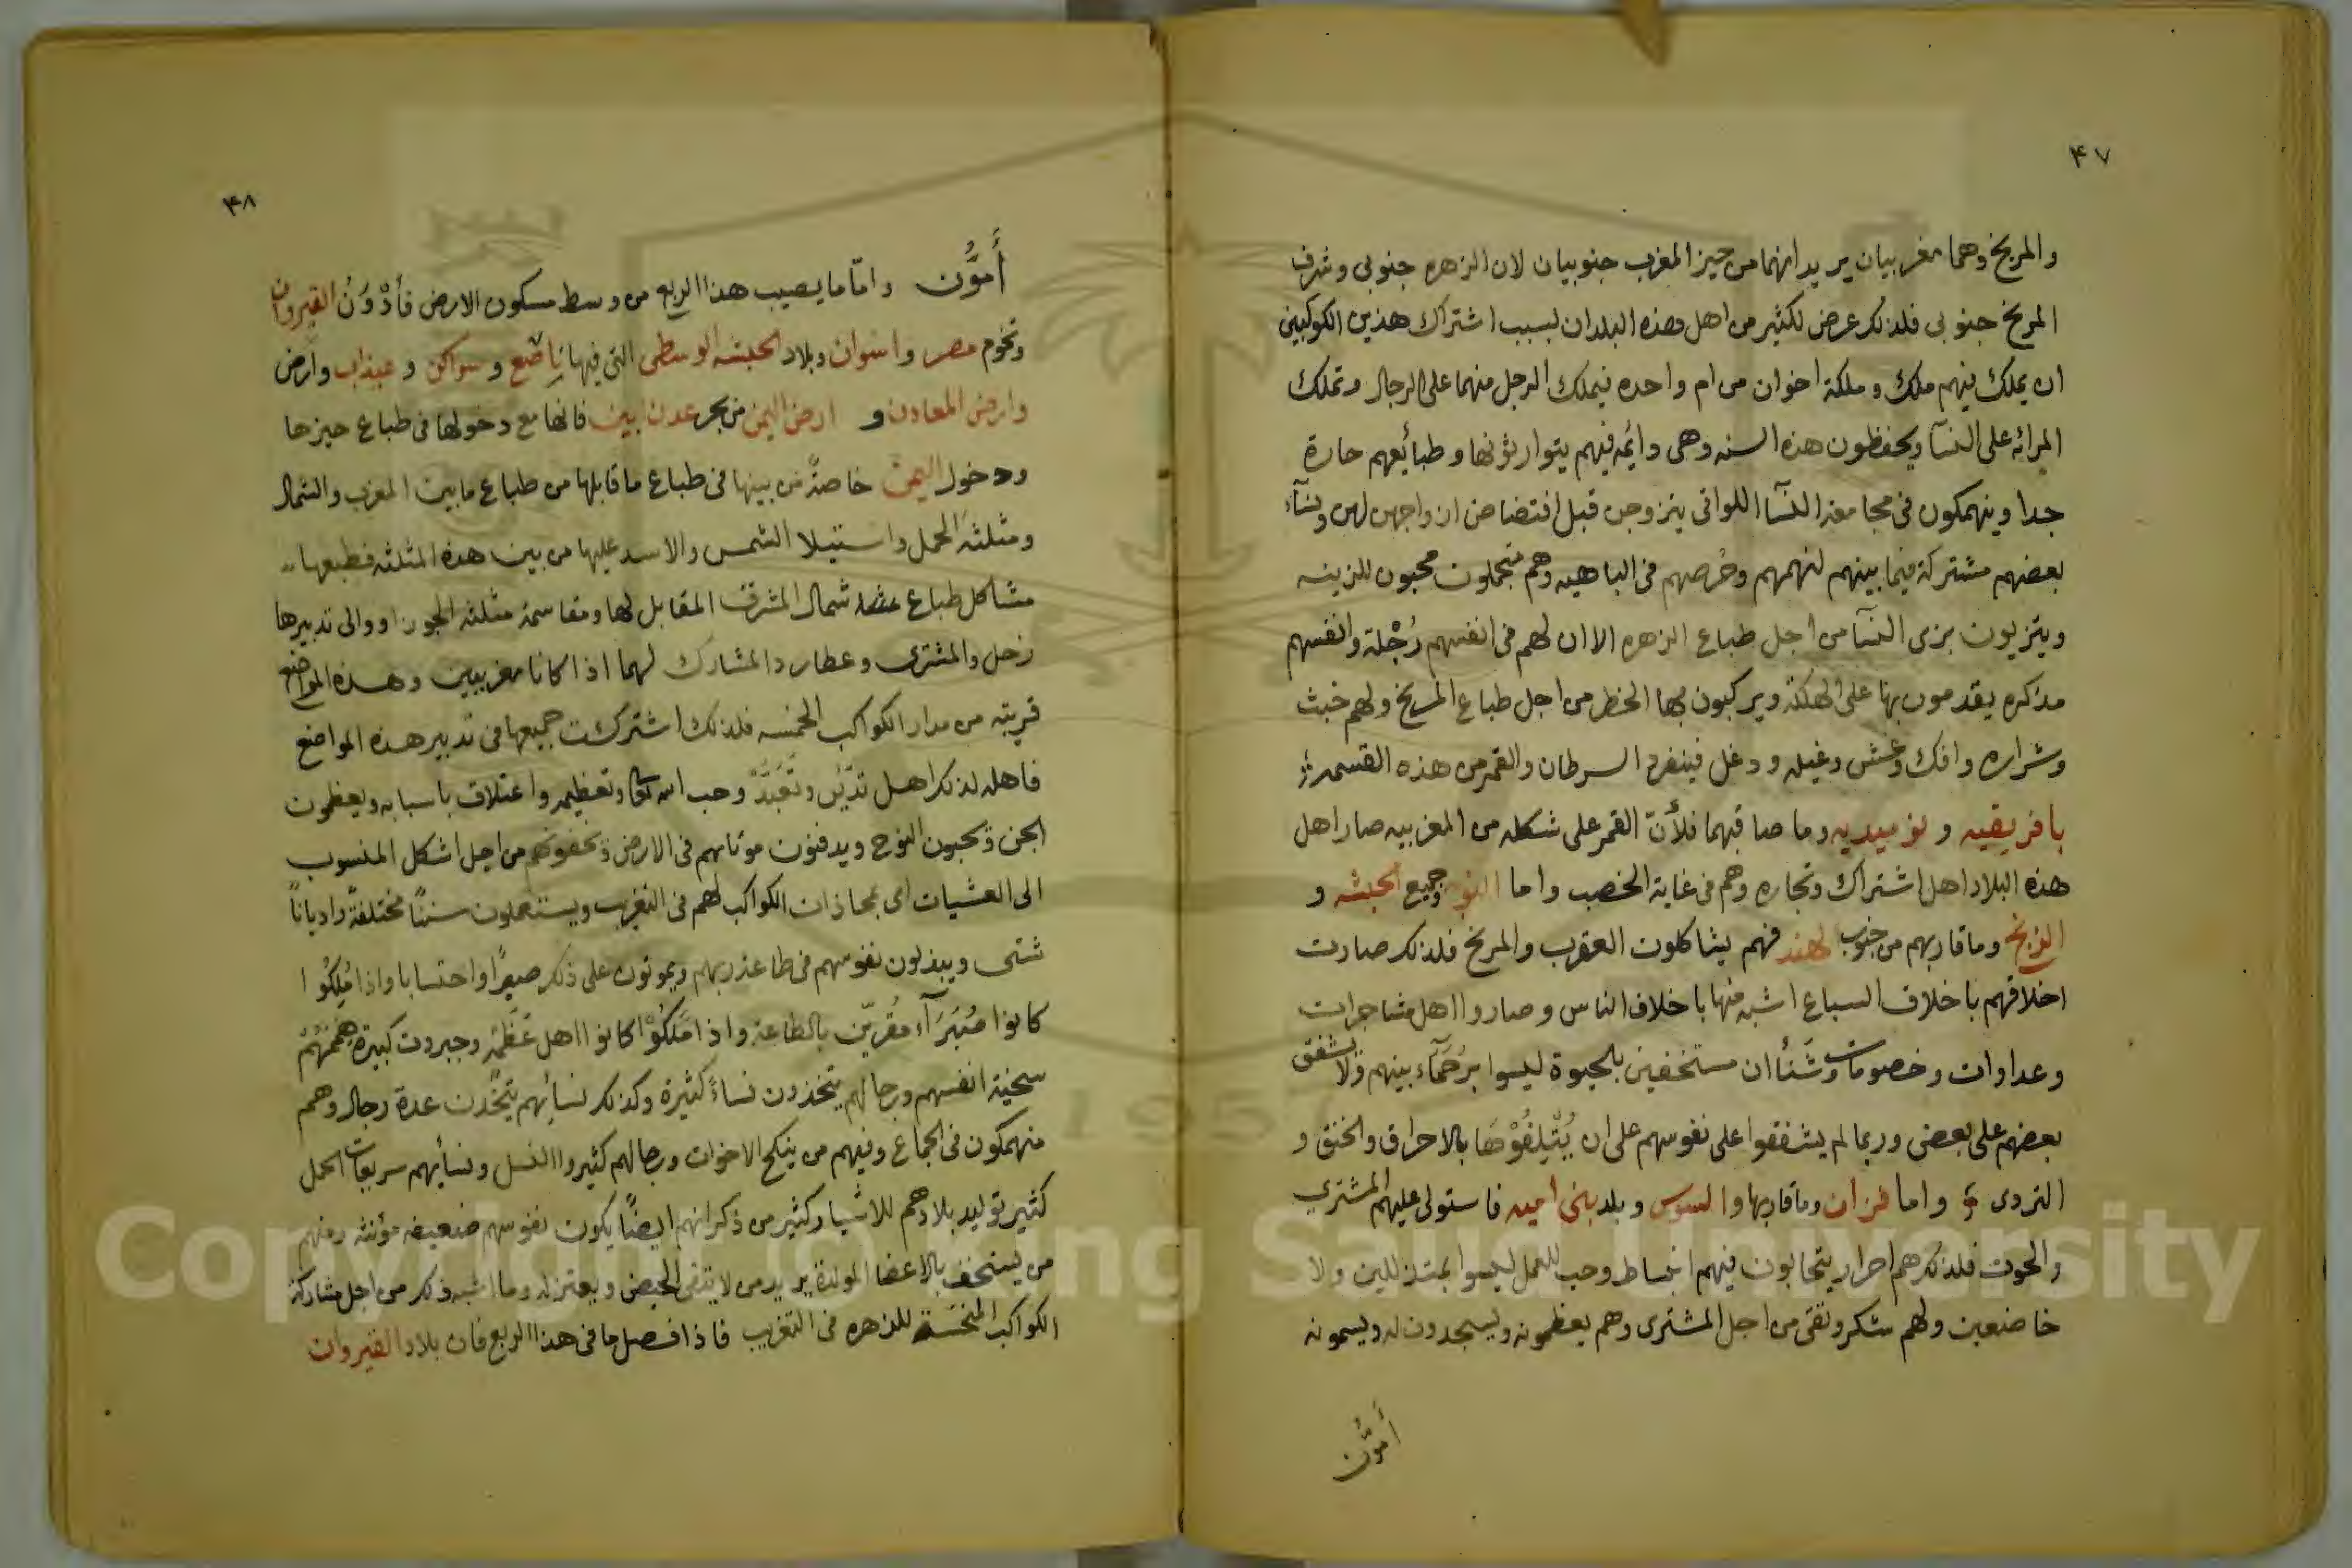 ٤٧
والمريخ وهما مغربيان يريد انهما من حيز المغرب جنوبيان لان الزهره جنوبى وشرف
المريخ جنوبى فلذلك عرض لكثير من اهل هذه البلدان لسبب اشتراك هذين الكوكبين
ان يملك فيهم ملك وملكة اخوان من ام واحده فيملك الرجل منهما على الرجال وتملك
المرائه على النسآ ويحفظون هذه السنه وهى دائمه فيهم يتوارثونها وطبائعهم حارة
جدا وينهمكون فى مجامعة النسآ اللواتى يتزوجن قبل افتضاض ازواجهن لهن ونسآء
بعضهم مشتركة فيما بينهم لنهمهم وحرصهم فى الباهيه وهم متجملون محبون للزينه
ويتزيون بزى النسآ من اجل طباع الزهره الا ان لهم فى انفسهم رُجْلة وانفسهم
مذكره يقدمون بها على الهلكة ويركبون بها الخطر من اجل طباع المريخ ولهم خبث
وشراره وافك وغش وغيله ودغل فينفرد السرطان والقمر من هذه القسمه
بافريقيه و نوميديه وما صاقبهما فلأنّ القمر على شكله من المغربيه صار اهل
هذه البلاد اهل اشتراك وتجاره وهم فى غاية الخصب واما النوبه وجميع الحبشه و
الزنج وما قاربهم من جنوب الهند فهم يشاكلون العقرب والمريخ فلذلك صارت
اخلاقهم باخلاق السباع اشبه منها باخلاق الناس وصاروا اهل مشاجرات
وعداوات وخصومات وشَنأان مستخفين بالحيوة ليسوا برُحَمآء بينهم ولا يشفق
بعضهم على بعض وربما لم يشفقوا على نفوسهم على ان يُتْلِفُوْهَا بالاحراق والخنق و
التردى واما فزان وما قاربها والسوس وبلد بنى اميه فاستولى عليهم المشترى
والحوت فلذلك هم احرار يتحابون فيهم انبساط وحب للعمل ليسوا بمتذللين ولا
خاضعين ولهم شكر وتقى من اجل المشترى وهم يعظمونه ويسجدون له ويسمونه
أَموُّن
٤٨
أَموُّن وامّا ما يصيب هذا الربع من وسط مسكون الارض فأدْوَنُ القيروان
وتخوم مصر واسوان وبلاد الحبشه الوسطى التى فيها ناضع وسواكن و عيذاب وارض
وارض المعادن و ارض اليمن من بحر عدن ابين فانها مع دخولها فى طباع حيزها
ودخول اليمن خاصةً من بينها فى طباع ما قابلها من طباع ما بين المغرب والشمال
ومثلثه الحمل واستيلا الشمس والاسد عليها من بين هذه المثلثه فطبعها
مشاكل طباع شمال المشرق المقابل لها ومقاسمة مثلثه الجوزا ووالى تدبيرها
زحل والمشترى وعطارد المشارك لهما اذا كانا مغربيين وهذه المواضع
قريبه من مدار الكواكب الخمسه فلذلك اشتركت جميعها فى تدبير هذه المواضع
فاهله لذلك اهل تدّيُن وتعَبُدْ وحب الله تعالى وتعظيمه واعتلاق باسبابه ويعظمون
الجن ويحبون النوح ويدفنون موتاهم فى الارض ويخفونهم من اجل اشكل المنسوب
الى العشيات اى بمحاذات الكواكب لهم فى التغريب ويستعملون سننًا مختلفة وادياناً
شتى ويبذلون نفوسهم فى طاعة ربهم ويموتون على ذلك صبرًا واحتسابا واذا مُلِكُوا
كانوا صُبَرَآء مقُريّن بالطاعه واذا مَلَكُوْا كانوا اهل عَظَمَه وجبروت كبيرة هِمَمُهُمْ
سخينة انفسهم ورجالهم يتخذون نساءً كثيرة وكذلك نسائهم يتخّذن عدة رجال وهم
منهمكون فى الجماع وفيهم من ينكح الاخوات ورجالهم كثيروا النسل ونسأيهم سريعات الحمل
كثير توليد بلادهم للاشيا وكثير من ذكرانهم ايضًا يكون نفوسهم ضعيفه مؤنثه ومنهم
من يستخف بالاعضا المولدة يريد من لا يتقى الحيض ويعتزله وما اشبه ذلك من اجل مشاركة
الكواكب المنحسة للزهره فى التغريب فاذا فصل ما فى هذا الربع فان بلاد القيروان